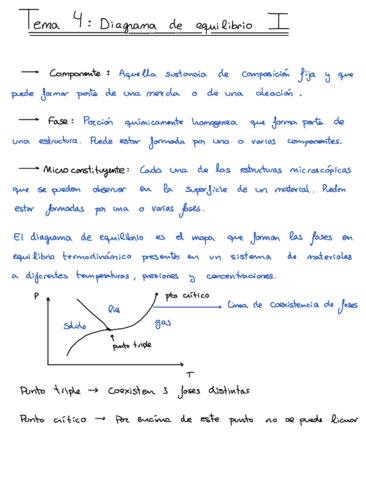 Tema 4: Diagrama de equilibrio I
→ Componente: Aquella sustancia de composición fija y que
puede formar parte de una mezcla o de una aleación.
→ Fase: Porción químicamente homogenea que forma parte de
una estructura. Puede estar formada por uno o varios componentes.
→ Micro constituyente: Cada una de las estructuras microscópicas
que se pueden observar en la superficie de un material. Pueden
estar formadas por una o varias fases.
El diagrama de equilibrio es el mapa que forman las fases en
equilibrio termodinámico presentes en un sistema de materiales
a diferentes temperaturas, presiones y concentraciones.
P
pto crítico
liq
Linea de coexistencia de fases
Sólido
gas
punto triple
T
Punto triple → Coexisten 3 fases distintas
Punto crítico → Por encima de este punto no se puede licuar